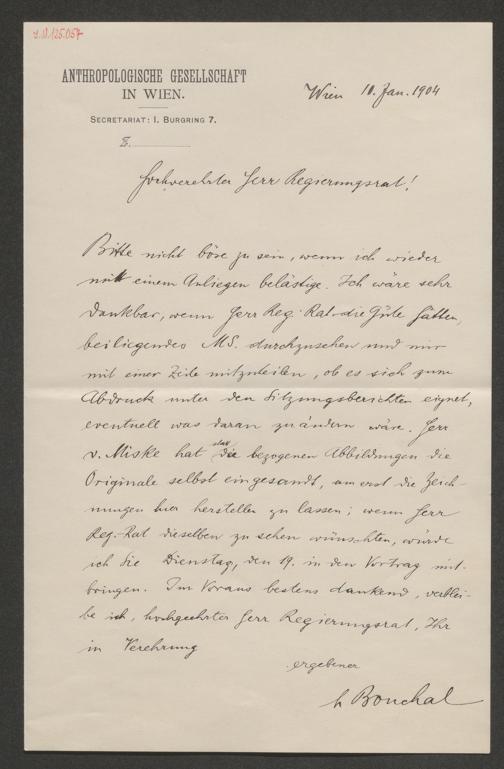 I.N. 125.057
ANTHROPOLOGISCHE GESELLSCHAFT
IN WIEN.
SECRETARIAT: I. BURGRING 7.
Wien 10. Jan. 1904
Hochverehrter Herr Regierungsrat!
Bitte nicht böse zu sein, wenn ich wieder
mit einem Anliegen belästige. Ich wäre sehr
dankbar, wenn Herr Reg. Rat die Güte hätten,
beiliegendes MS. durchzusehen und mir
mit einer Zeile mitzuteilen, ob es sich zum
Abdruck unter den Sitzungsberichten eignet,
eventuell was daran zu ändern wäre. Herr
v. Miske hat statt die bezogenen Abbildungen die
Originale selbst eingesandt, um erst die Zeich-
nungen hier herstellen zu lassen; wenn Herr
Reg.-Rat dieselben zu sehen wünschten, würde
ich Sie Dienstag, den 19. in den Vortrag mit-
bringen. Im Voraus bestens dankend, verblei-
be ich, hochgeehrter Herr Regierungsrat, Ihr
in Verehrung
ergebener
L Bouchal